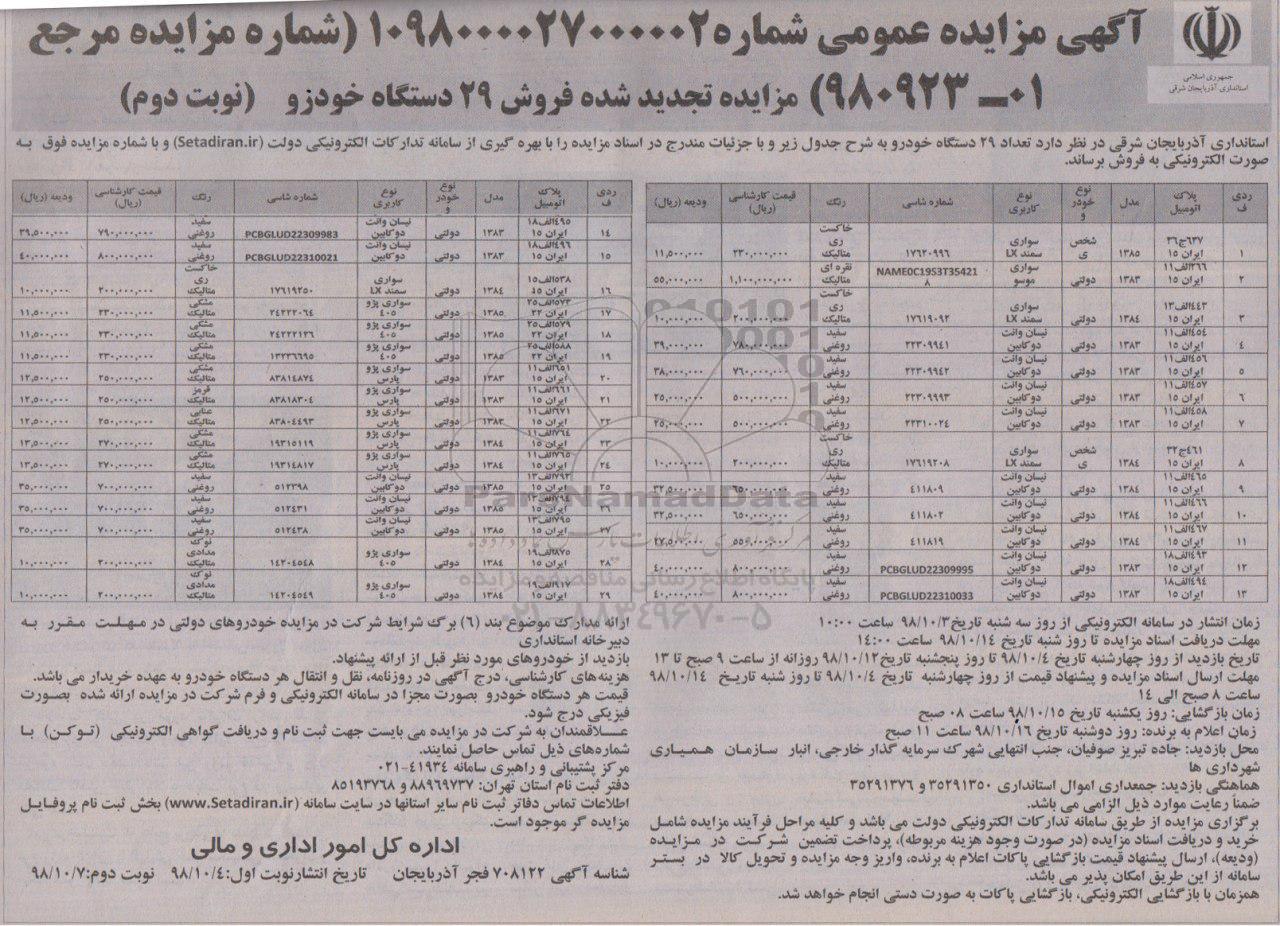 جمهوری اسلامی
استانداری آذربایجان شرقی
آگهی مزایده عمومی شماره ۱۰۹۸۰۰۰۰۲۷۰۰۰۰۰۲ (شماره مزایده مرجع
۰۱ــ ۹۸۰۹۲۳) مزایده تجدید شده فروش ۲۹ دستگاه خودرو (نوبت دوم)
استانداری آذربایجان شرقی در نظر دارد تعداد ۲۹ دستگاه خودرو به شرح جدول زیر و با جزئیات مندرج در اسناد مزایده را با بهره گیری از سامانه تدارکات الکترونیکی دولت (Setadiran.ir) و با شماره مزایده فوق به
صورت الکترونیکی به فروش برساند.
ردی ف | پلاک اتومبیل | مدل | نوع خودر و | نوع کاربری | شماره شاسی | رنگ | قیمت کارشناسی (ریال) | ودیعه (ریال)
۱ | ۶۳۷ج۳۶ ایران ۱۵ | ۱۳۸۵ | شخص ی | سواری سمند LX | ۱۷۶۲۰۹۹۶ | خاکست ری متالیک | ۲۳۰,۰۰۰,۰۰۰ | ۱۱,۵۰۰,۰۰۰
۲ | ۲۶۶الف۱۱ ایران ۱۵ | ۱۳۸۳ | دولتی | سواری موسو | NAME0C19S3T35421 8 | نقره ای متالیک | ۱,۱۰۰,۰۰۰,۰۰۰ | ۵۵,۰۰۰,۰۰۰
۳ | ۴۴۳الف۱۳ ایران ۱۵ | ۱۳۸۴ | دولتی | سواری سمند LX | ۱۷۶۱۹۰۹۲ | خاکست ری متالیک | ۲۰۰,۰۰۰,۰۰۰ | ۱۰,۰۰۰,۰۰۰
۴ | ۴۵۴الف۱۱ ایران ۱۵ | ۱۳۸۳ | دولتی | نیسان وانت دوکابین | ۲۲۳۰۹۹۴۱ | سفید روغنی | ۷۸۰,۰۰۰,۰۰۰ | ۳۹,۰۰۰,۰۰۰
۵ | ۴۵۶الف۱۱ ایران ۱۵ | ۱۳۸۳ | دولتی | نیسان وانت دوکابین | ۲۲۳۰۹۹۴۲ | سفید روغنی | ۷۶۰,۰۰۰,۰۰۰ | ۳۸,۰۰۰,۰۰۰
۶ | ۴۵۷الف۱۱ ایران ۱۵ | ۱۳۸۳ | دولتی | نیسان وانت دوکابین | ۲۲۳۰۹۹۹۳ | سفید روغنی | ۵۰۰,۰۰۰,۰۰۰ | ۲۵,۰۰۰,۰۰۰
۷ | ۴۵۸الف۱۱ ایران ۱۵ | ۱۳۸۳ | دولتی | نیسان وانت دوکابین | ۲۲۳۱۰۰۲۴ | سفید روغنی | ۵۰۰,۰۰۰,۰۰۰ | ۲۵,۰۰۰,۰۰۰
۸ | ۴۶۱ج۳۲ ایران ۱۵ | ۱۳۸۴ | شخص ی | سواری سمند LX | ۱۷۶۱۹۲۰۸ | خاکست ری متالیک | ۲۰۰,۰۰۰,۰۰۰ | ۱۰,۰۰۰,۰۰۰
۹ | ۴۶۵الف۱۱ ایران ۱۵ | ۱۳۸۴ | دولتی | نیسان وانت دوکابین | ۴۱۱۸۰۹ | سفید روغنی | ۶۵۰,۰۰۰,۰۰۰ | ۳۲,۵۰۰,۰۰۰
۱۰ | ۴۶۶الف۱۱ ایران ۱۵ | ۱۳۸۴ | دولتی | نیسان وانت دوکابین | ۴۱۱۸۰۲ | سفید روغنی | ۶۵۰,۰۰۰,۰۰۰ | ۳۲,۵۰۰,۰۰۰
۱۱ | ۴۶۷الف۱۱ ایران ۱۵ | ۱۳۸۴ | دولتی | نیسان وانت دوکابین | ۴۱۱۸۱۹ | سفید روغنی | ۵۵۰,۰۰۰,۰۰۰ | ۲۷,۵۰۰,۰۰۰
۱۲ | ۴۹۳الف۱۸ ایران ۱۵ | ۱۳۸۳ | دولتی | نیسان وانت دوکابین | PCBGLUD22309995 | سفید روغنی | ۸۰۰,۰۰۰,۰۰۰ | ۴۰,۰۰۰,۰۰۰
۱۳ | ۴۹۴الف۱۸ ایران ۱۵ | ۱۳۸۳ | دولتی | نیسان وانت دوکابین | PCBGLUD22310033 | سفید روغنی | ۸۰۰,۰۰۰,۰۰۰ | ۴۰,۰۰۰,۰۰۰
ردی ف | پلاک اتومبیل | مدل | نوع خودر و | نوع کاربری | شماره شاسی | رنگ | قیمت کارشناسی (ریال) | ودیعه (ریال)
۱۴ | ۴۹۵الف۱۸ ایران ۱۵ | ۱۳۸۳ | دولتی | نیسان وانت دوکابین | PCBGLUD22309983 | سفید روغنی | ۷۹۰,۰۰۰,۰۰۰ | ۳۹,۵۰۰,۰۰۰
۱۵ | ۴۹۶الف۱۸ ایران ۱۵ | ۱۳۸۳ | دولتی | نیسان وانت دوکابین | PCBGLUD22310021 | سفید روغنی | ۸۰۰,۰۰۰,۰۰۰ | ۴۰,۰۰۰,۰۰۰
۱۶ | ۵۳۸الف۱۵ ایران ۱۵ | ۱۳۸۴ | دولتی | سواری سمند LX | ۱۷۶۱۹۲۵۰ | خاکست ری متالیک | ۲۰۰,۰۰۰,۰۰۰ | ۱۰,۰۰۰,۰۰۰
۱۷ | ۵۷۳الف۲۵ ایران ۲۲ | ۱۳۸۵ | دولتی | سواری پژو ۴۰۵ | ۲۴۲۲۲۰۶۴ | مشکی متالیک | ۲۳۰,۰۰۰,۰۰۰ | ۱۱,۵۰۰,۰۰۰
۱۸ | ۵۷۹الف۲۵ ایران ۲۲ | ۱۳۸۵ | دولتی | سواری پژو ۴۰۵ | ۲۴۲۲۲۱۳۶ | مشکی متالیک | ۲۳۰,۰۰۰,۰۰۰ | ۱۱,۵۰۰,۰۰۰
۱۹ | ۵۸۸الف۲۵ ایران ۲۲ | ۱۳۸۵ | دولتی | سواری پژو ۴۰۵ | ۱۳۲۳۶۶۹۵ | مشکی متالیک | ۲۳۰,۰۰۰,۰۰۰ | ۱۱,۵۰۰,۰۰۰
۲۰ | ۶۵۱الف۱۱ ایران ۱۵ | ۱۳۸۳ | دولتی | سواری پژو پارس | ۸۳۸۱۴۸۷۴ | مشکی متالیک | ۲۵۰,۰۰۰,۰۰۰ | ۱۲,۵۰۰,۰۰۰
۲۱ | ۶۶۱الف۱۱ ایران ۱۵ | ۱۳۸۳ | دولتی | سواری پژو پارس | ۸۳۸۱۸۳۰۴ | قرمز متالیک | ۲۵۰,۰۰۰,۰۰۰ | ۱۲,۵۰۰,۰۰۰
۲۲ | ۶۷۱الف۱۱ ایران ۱۵ | ۱۳۸۳ | دولتی | سواری پژو پارس | ۸۳۸۰۴۴۹۳ | عنابی متالیک | ۲۵۰,۰۰۰,۰۰۰ | ۱۲,۵۰۰,۰۰۰
۲۳ | ۷۶۴الف۱۱ ایران ۱۵ | ۱۳۸۴ | دولتی | سواری پژو پارس | ۱۹۳۱۵۱۱۹ | مشکی متالیک | ۲۷۰,۰۰۰,۰۰۰ | ۱۳,۵۰۰,۰۰۰
۲۴ | ۷۶۵الف۱۱ ایران ۱۵ | ۱۳۸۴ | دولتی | سواری پژو پارس | ۱۹۳۱۴۸۱۷ | مشکی متالیک | ۲۷۰,۰۰۰,۰۰۰ | ۱۳,۵۰۰,۰۰۰
۲۵ | ۷۹۳الف۱۳ ایران ۱۵ | ۱۳۸۵ | دولتی | نیسان وانت دوکابین | ۵۱۲۳۹۸ | سفید روغنی | ۷۰۰,۰۰۰,۰۰۰ | ۳۵,۰۰۰,۰۰۰
۲۶ | ۷۹۴الف۱۳ ایران ۱۵ | ۱۳۸۵ | دولتی | نیسان وانت دوکابین | ۵۱۲۴۳۱ | سفید روغنی | ۷۰۰,۰۰۰,۰۰۰ | ۳۵,۰۰۰,۰۰۰
۲۷ | ۷۹۵الف۱۳ ایران ۱۵ | ۱۳۸۵ | دولتی | نیسان وانت دوکابین | ۵۱۲۴۳۸ | سفید روغنی | ۷۰۰,۰۰۰,۰۰۰ | ۳۵,۰۰۰,۰۰۰
۲۸ | ۸۷۵الف۱۹ ایران ۱۵ | ۱۳۸۴ | دولتی | سواری پژو ۴۰۵ | ۱۴۲۰۴۵۴۸ | نوک مدادی متالیک | ۲۰۰,۰۰۰,۰۰۰ | ۱۰,۰۰۰,۰۰۰
۲۹ | ۹۱۷الف۱۹ ایران ۱۵ | ۱۳۸۴ | دولتی | سواری پژو ۴۰۵ | ۱۴۲۰۴۵۴۹ | نوک مدادی متالیک | ۲۰۰,۰۰۰,۰۰۰ | ۱۰,۰۰۰,۰۰۰
ParsNamadData
پایگاه اطلاع رسانی مناقصه و مزایده
۰۲۱-۸۸۳۴۹۶۷۰-۵
زمان انتشار در سامانه الکترونیکی از روز سه شنبه تاریخ۹۸/۱۰/۳ ساعت ۱۰:۰۰
مهلت دریافت اسناد مزایده تا روز شنبه تاریخ ۹۸/۱۰/۱۴ ساعت ۱۴:۰۰
تاریخ بازدید از روز چهارشنبه تاریخ ۹۸/۱۰/۴ تا روز پنجشنبه تاریخ۹۸/۱۰/۱۲ روزانه از ساعت ۹ صبح تا ۱۳
مهلت ارسال اسناد مزایده و پیشنهاد قیمت از روز چهارشنبه تاریخ ۹۸/۱۰/۴ تا روز شنبه تاریخ ۹۸/۱۰/۱۴
ساعت ۸ صبح الی ۱۴
زمان بازگشایی: روز یکشنبه تاریخ ۹۸/۱۰/۱۵ ساعت ۰۸ صبح
زمان اعلام به برنده: روز دوشنبه تاریخ ۹۸/۱۰/۱۶ ساعت ۱۱ صبح
محل بازدید: جاده تبریز صوفیان، جنب انتهایی شهرک سرمایه گذار خارجی، انبار سازمان همیاری
شهرداری ها
هماهنگی بازدید: جمعداری اموال استانداری ۳۵۲۹۱۳۵۰ و ۳۵۲۹۱۳۷۶
ضمناً رعایت موارد ذیل الزامی می باشد.
برگزاری مزایده از طریق سامانه تدارکات الکترونیکی دولت می باشد و کلیه مراحل فرآیند مزایده شامل
خرید و دریافت اسناد مزایده (در صورت وجود هزینه مربوطه)، پرداخت تضمین شرکت در مزایده
(ودیعه)، ارسال پیشنهاد قیمت بازگشایی پاکات اعلام به برنده، واریز وجه مزایده و تحویل کالا در بستر
سامانه از این طریق امکان پذیر می باشد.
همزمان با بازگشایی الکترونیکی، بازگشایی پاکات به صورت دستی انجام خواهد شد.
ارائه مدارک موضوع بند (۶) برگ شرایط شرکت در مزایده خودروهای دولتی در مهلت مقرر به
دبیرخانه استانداری
بازدید از خودروهای مورد نظر قبل از ارائه پیشنهاد.
هزینه‌های کارشناسی، درج آگهی در روزنامه، نقل و انتقال هر دستگاه خودرو به عهده خریدار می باشد.
قیمت هر دستگاه خودرو بصورت مجزا در سامانه الکترونیکی و فرم شرکت در مزایده ارائه شده بصورت
فیزیکی درج شود.
علاقمندان به شرکت در مزایده می بایست جهت ثبت نام و دریافت گواهی الکترونیکی (توکن) با
شماره‌های ذیل تماس حاصل نمایند.
مرکز پشتیبانی و راهبری سامانه ۴۱۹۳۴-۰۲۱
دفتر ثبت نام استان تهران: ۸۸۹۶۹۷۳۷ و ۸۵۱۹۳۷۶۸
اطلاعات تماس دفاتر ثبت نام سایر استانها در سایت سامانه (www.Setadiran.ir) بخش ثبت نام پروفایل
مزایده گر موجود است.
اداره کل امور اداری و مالی
شناسه آگهی ۷۰۸۱۲۲ فجر آذربایجان تاریخ انتشارنوبت اول:۹۸/۱۰/۴ نوبت دوم:۹۸/۱۰/۷